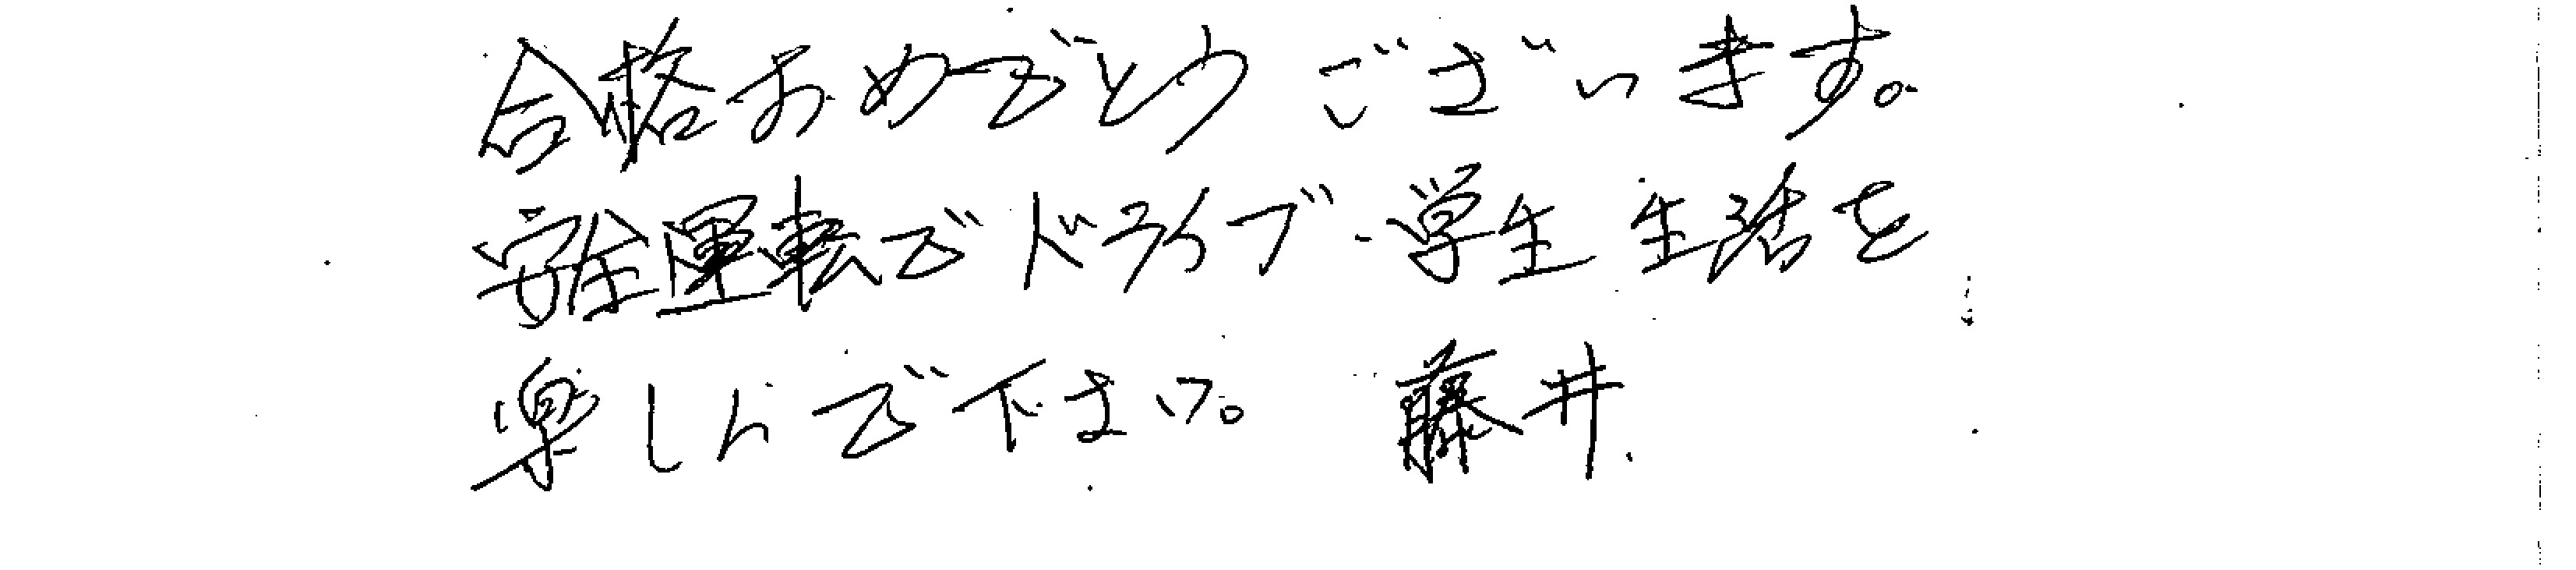 合格おめでとうございます。
安全運転でドライブ・学生生活を
楽しんで下さい。 藤井